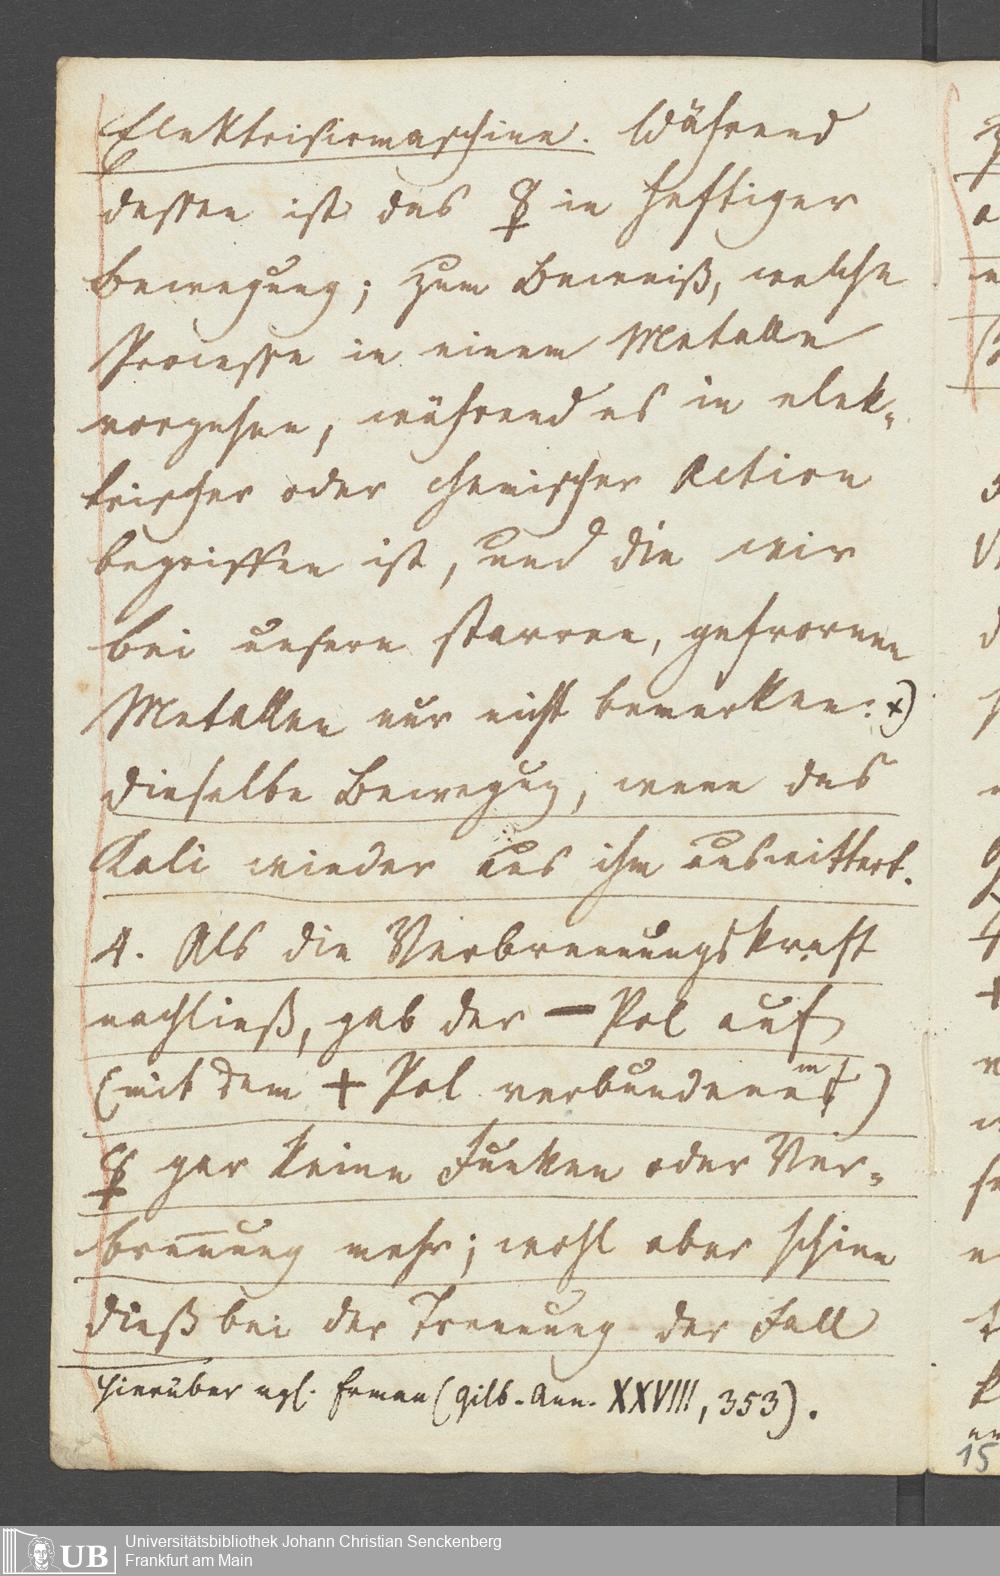 Elektrisirmaschine. Während
dessen ist das ☿ in heftiger
Bewegung; zum Beweiß, welche
Processe in einem Metalle
vorgehen, während es in elek-
trischer oder chemischer Action
begriffen ist, und die wir
bei unsern starren, gefrornen
Metallen nur nicht bemerken: x)
dieselbe Bewegug, wenn das
Kali wieder aus ihm auswittert.
4. Als die Verbrennungskraft
nachließ, gab der – Pol auf
(mit dem + Pol verbundenem)
☿ gar keine Funken oder Ver-
brennung mehr; wohl aber schien
dieß bei der Trennung der Fall
Hierüber vgl. Erman (Gilb. Ann. XXVIII, 353).
15
UB
Universitätsbibliothek Johann Christian Senckenberg
Frankfurt am Main